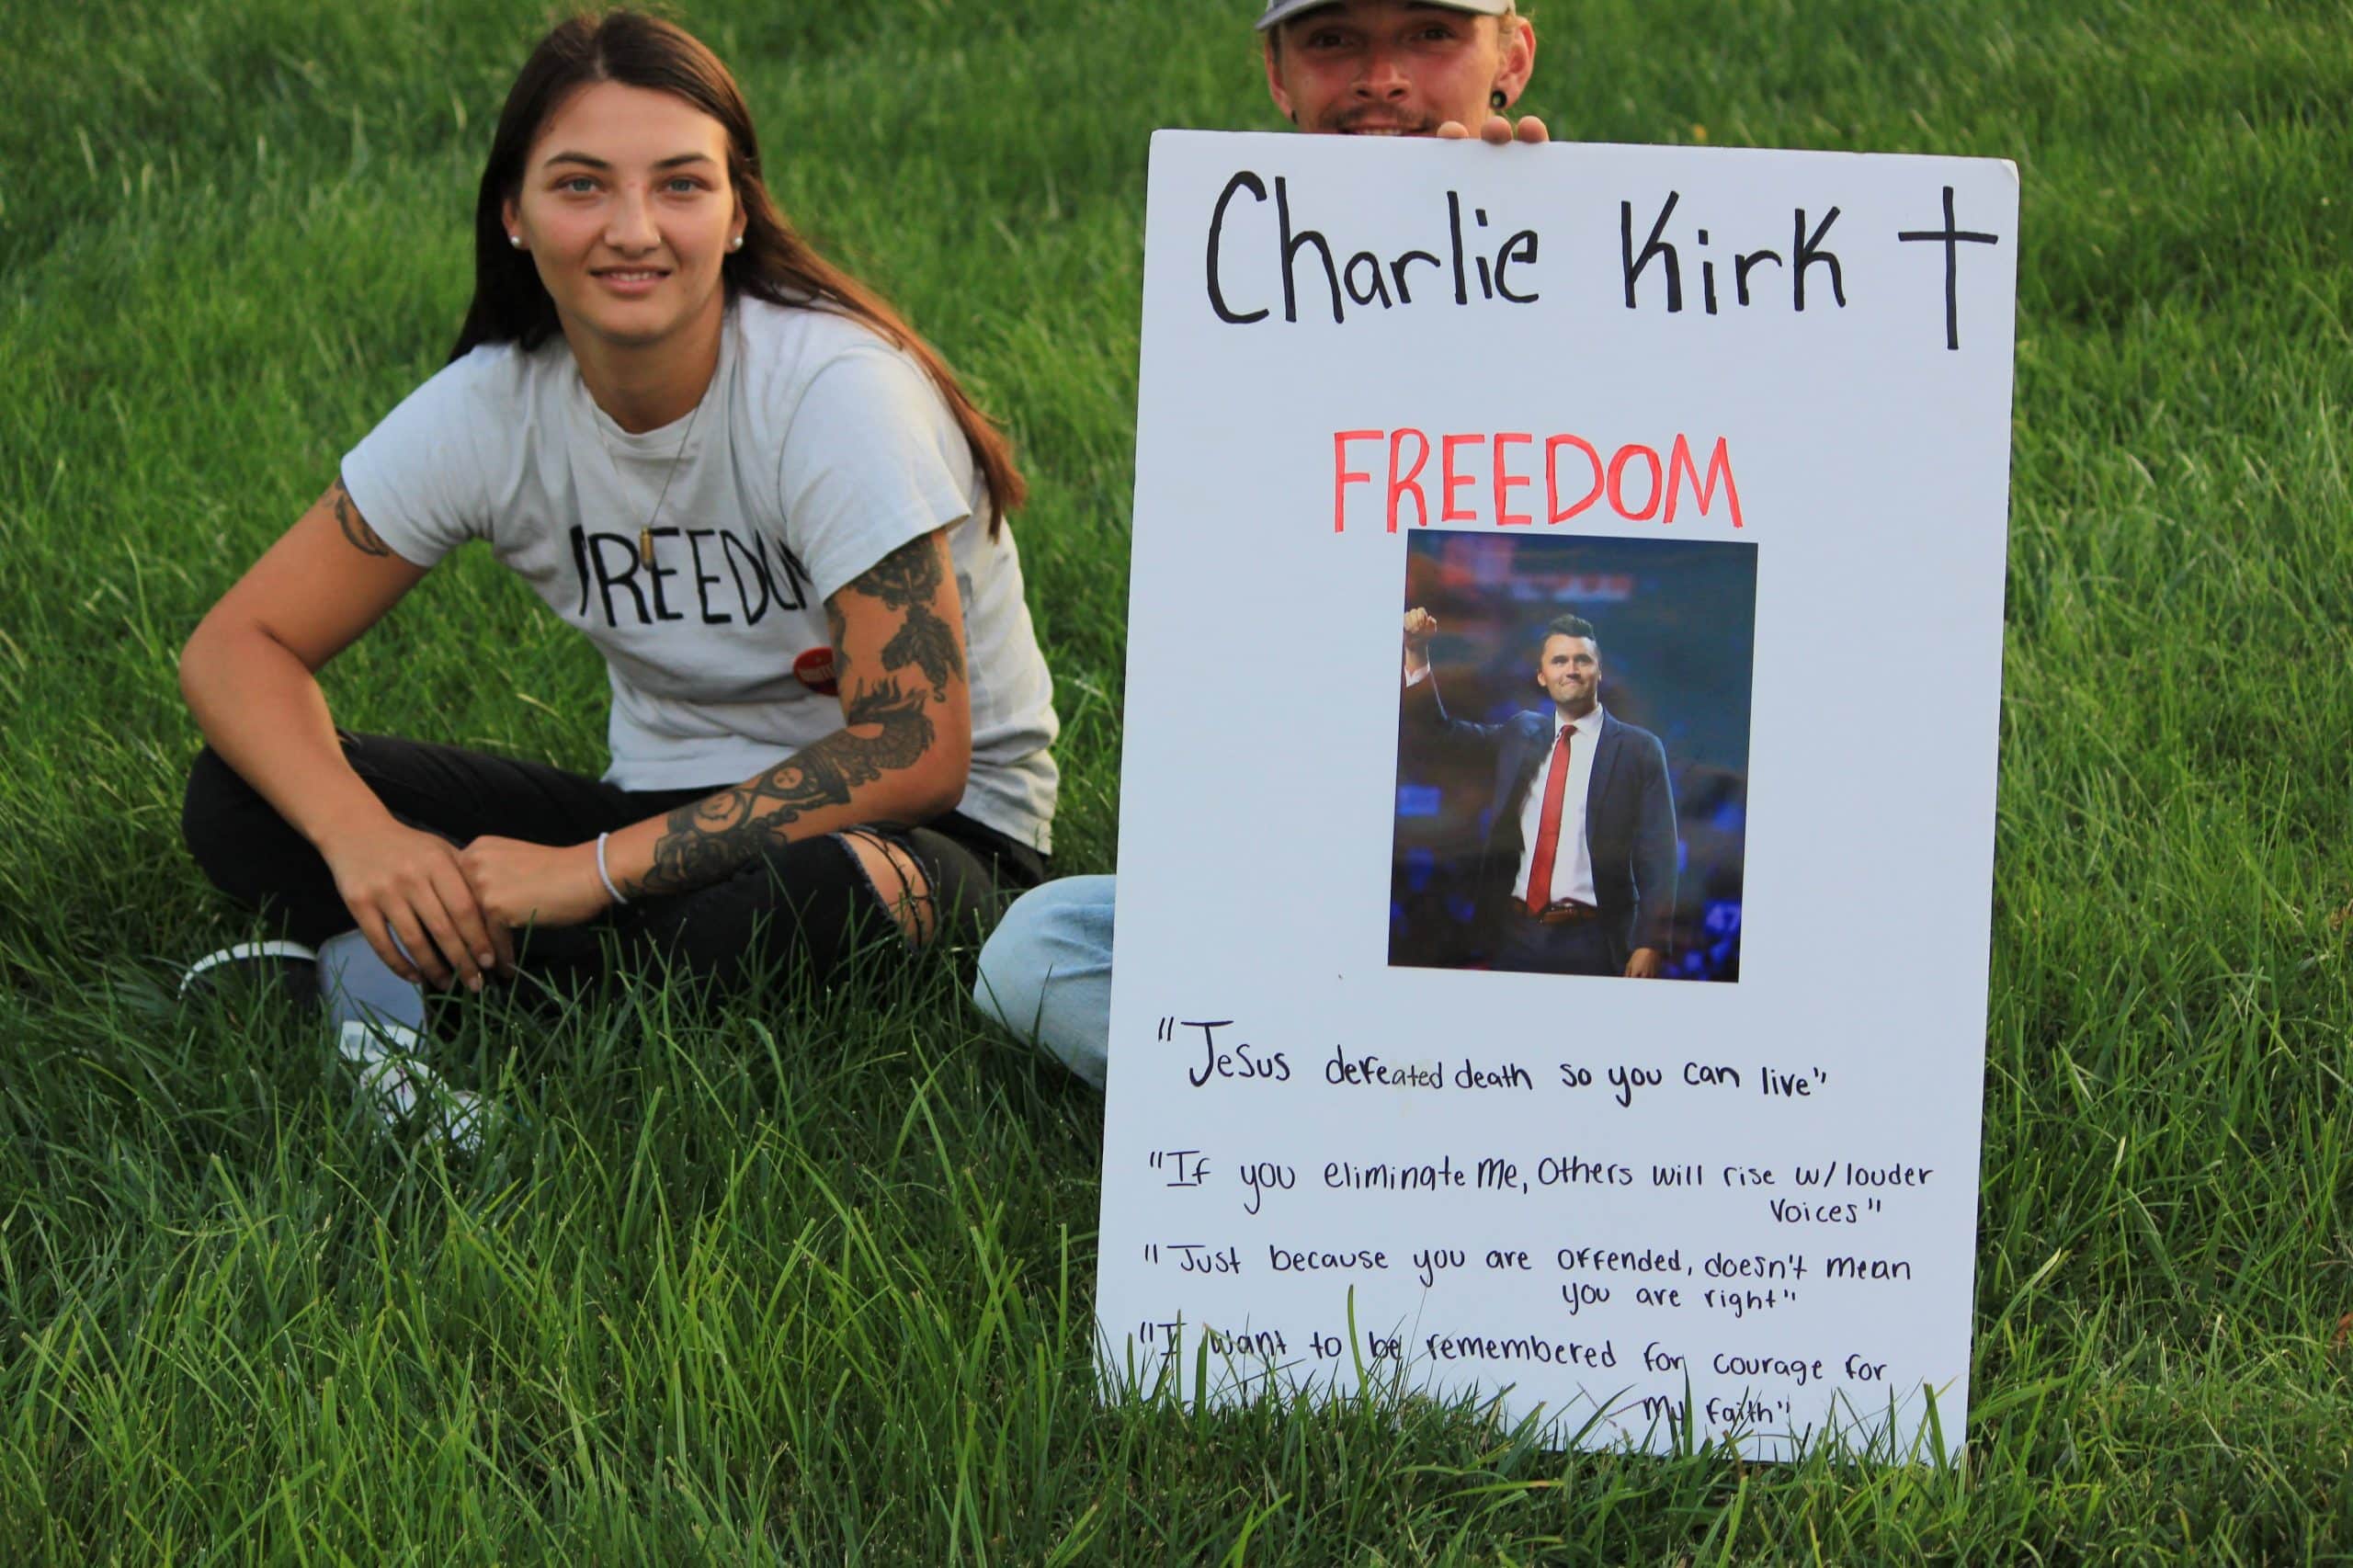 Charlie Kirk
FREEDOM
FREEDOM
47
"Jesus defeated death so you can live"
"If you eliminate me, Others will rise w/ louder
Voices"
"Just because you are offended, doesn't mean
you are right"
"I want to be remembered for courage for
My Faith"